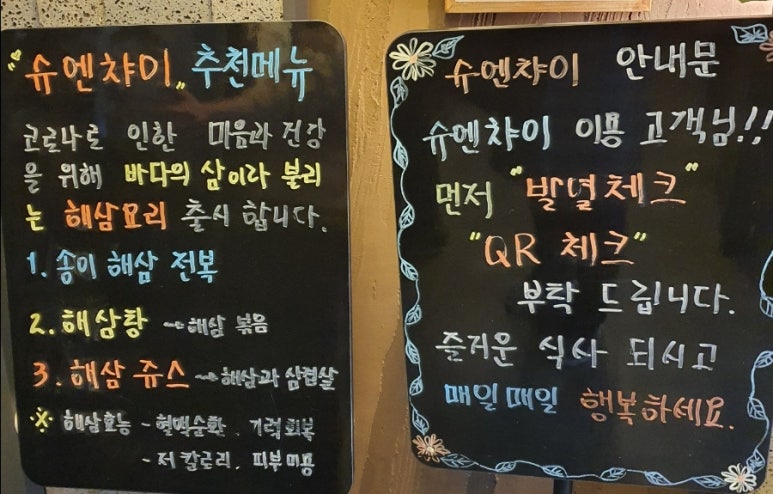 "슈엔챠이" 추천메뉴
코로나로 인한 마음과 건강
을 위해 바다의 삼이라 불리
는 해삼요리 출시 합니다.
1. 송이 해삼 전복
2. 해삼탕 → 해삼 볶음
3. 해삼 쥬스 → 해삼과 삼겹살
※ 해삼효능 - 혈액순환. 기력회복
- 저 칼로리. 피부미용
슈엔챠이 안내문
슈엔챠이 이용 고객님!!
먼저 "발열체크"
"QR 체크"
부탁 드립니다.
즐거운 식사 되시고
매일매일 행복하세요.